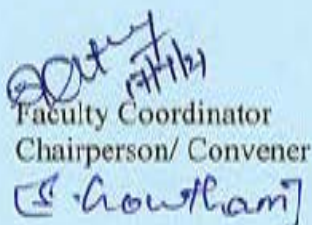 17/4/21
Faculty Coordinator
Chairperson/ Convener
[S. Gowtham]